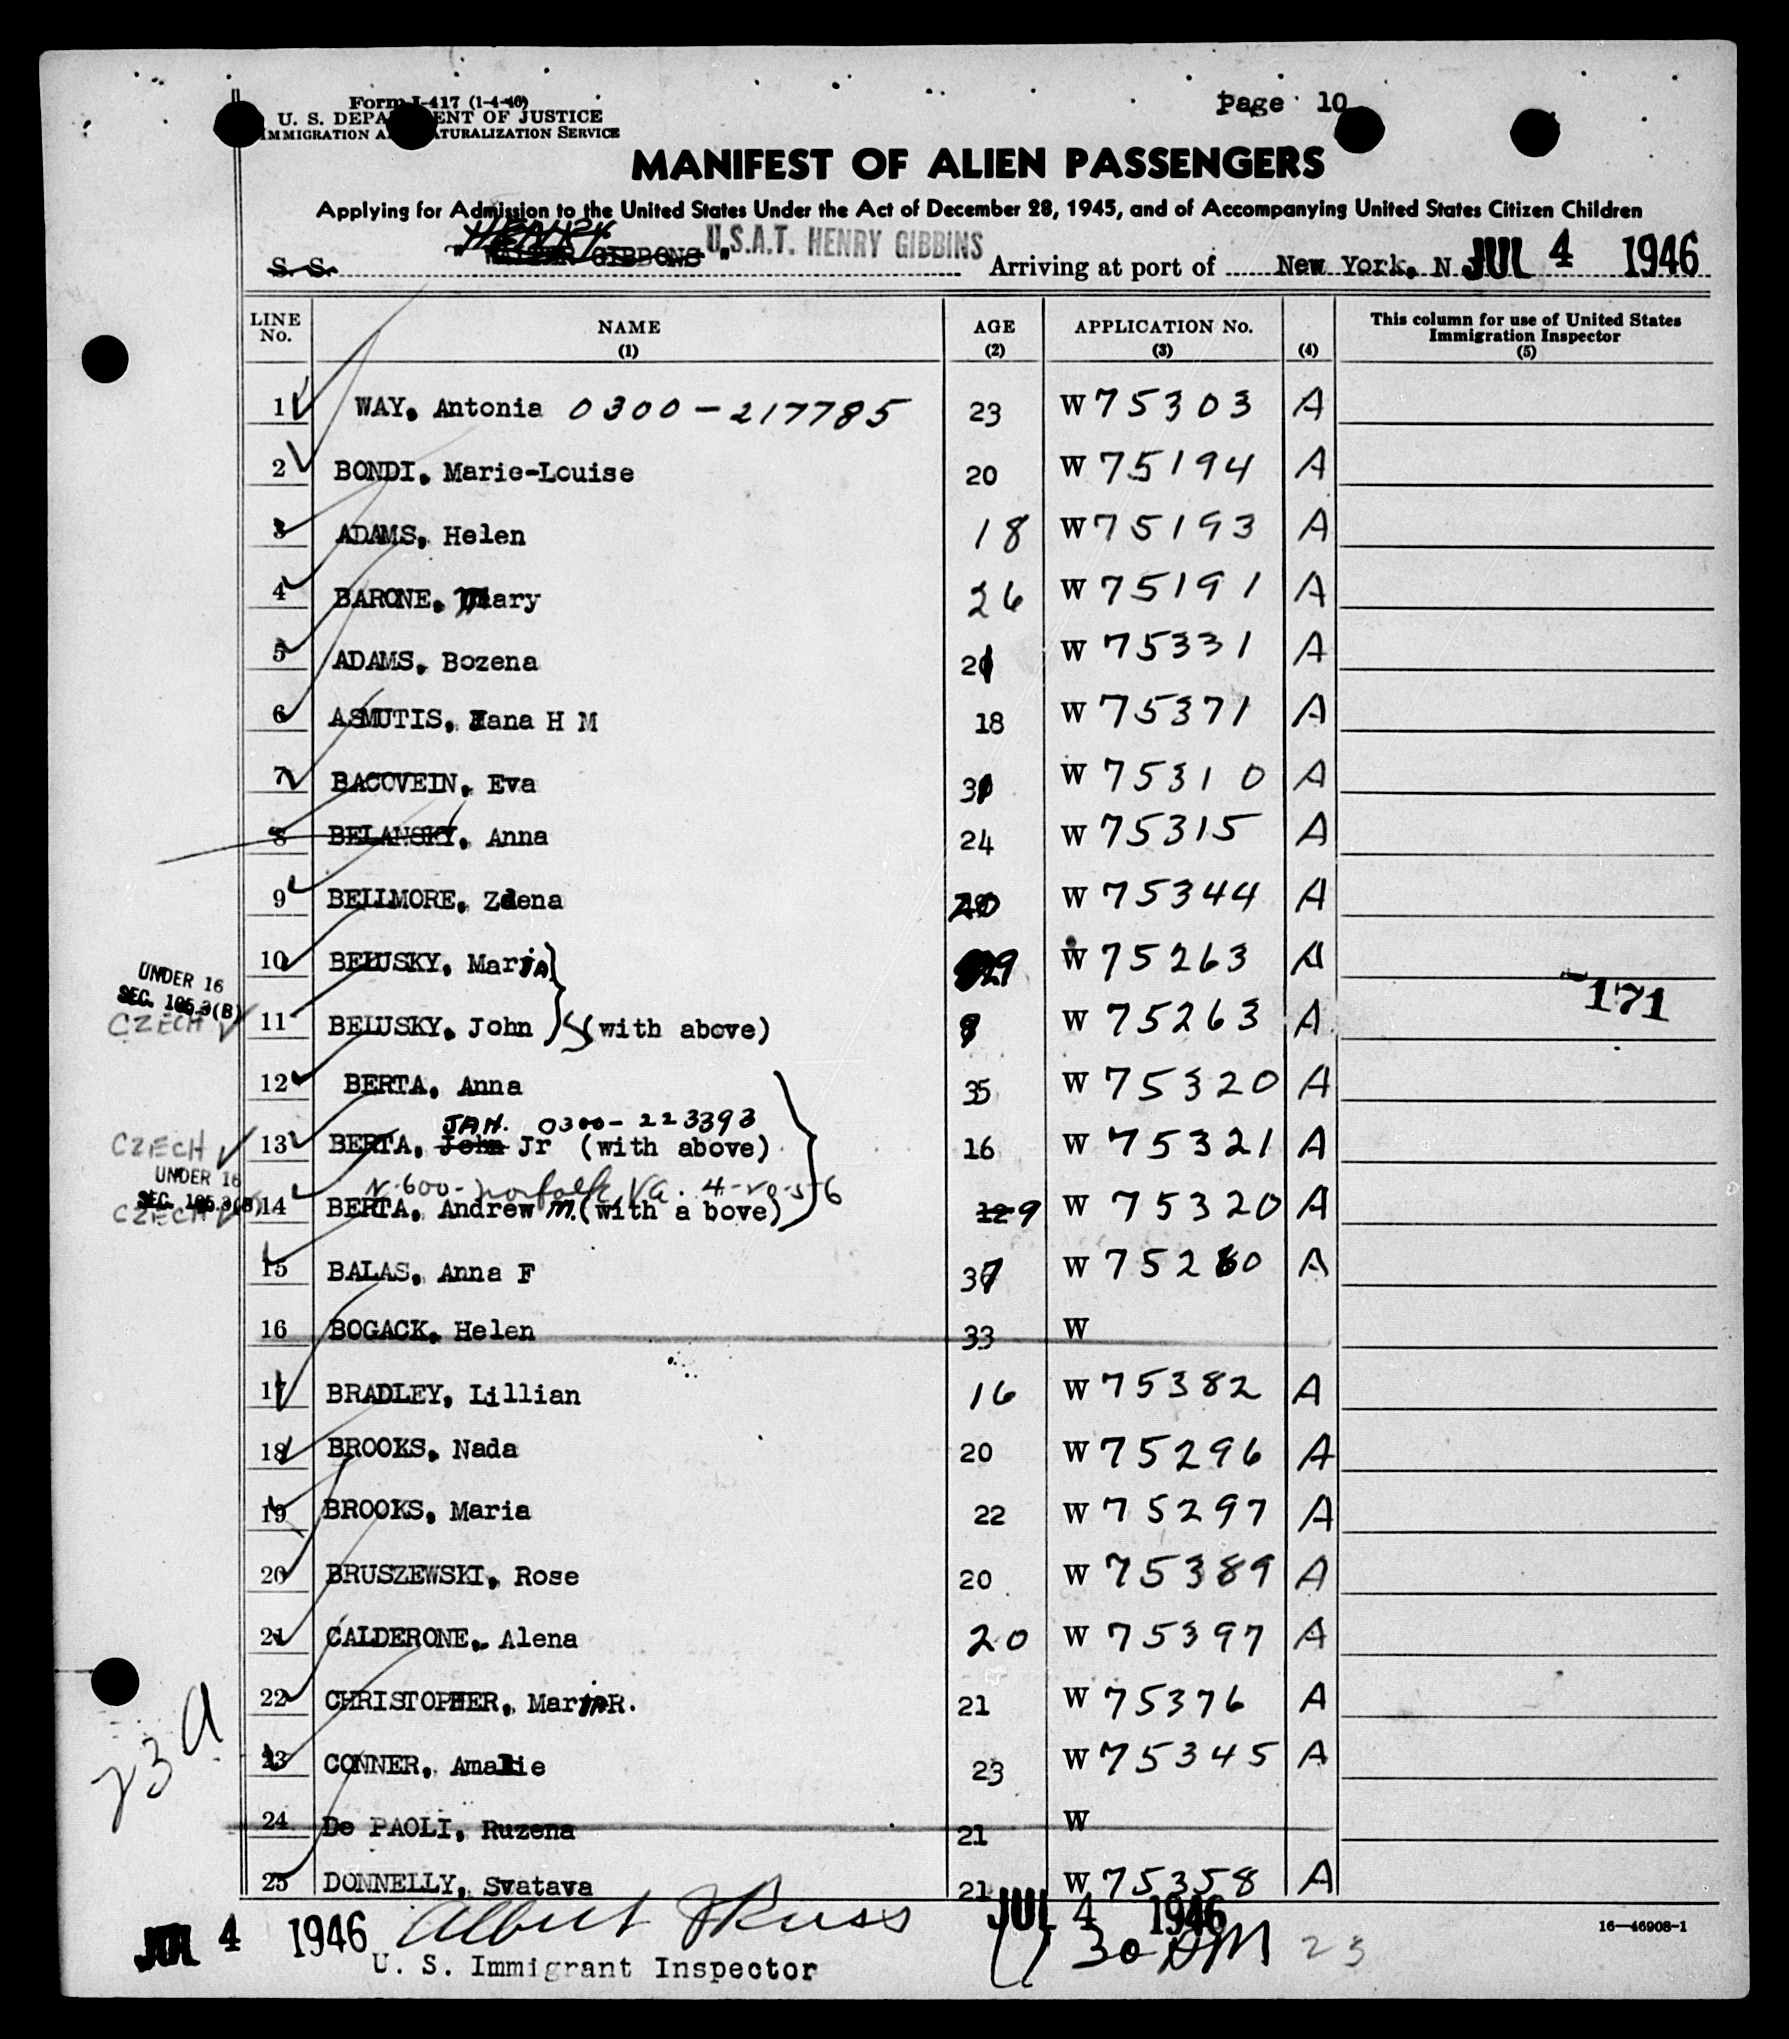 Form I-417 (1-4-46)
U. S. DEPARTMENT OF JUSTICE
IMMIGRATION AND NATURALIZATION SERVICE
Page 10
MANIFEST OF ALIEN PASSENGERS
Applying for Admission to the United States Under the Act of December 28, 1945, and of Accompanying United States Citizen Children
HENRY
S. S. " GIBBONS " U.S.A.T. HENRY GIBBINS Arriving at port of New York, N JUL 4 1946
LINE No. NAME (1) AGE (2) APPLICATION No. (3) (4) This column for use of United States Immigration Inspector (5)
1 WAY, Antonia 0300-217785 23 W 75303 A
2 BONDI, Marie-Louise 20 W 75194 A
3 ADAMS, Helen 18 W 75193 A
4 BARONE, Mary 26 W 75191 A
5 ADAMS, Bozena 21 W 75331 A
6 ASMUTIS, Hana H M 18 W 75371 A
7 BACOVEIN, Eva 31 W 75310 A
8 BELANSKY, Anna 24 W 75315 A
9 BELLMORE, Zdena 20 W 75344 A
10 BELUSKY, MarIA 29 W 75263 A
UNDER 16
SEC. 105.3(B)
171
CZECH 11 BELUSKY, John (with above) 8 W 75263 A
12 BERTA, Anna 35 W 75320 A
JAN. 0300-223393
CZECH 13 BERTA, John Jr (with above) 16 W 75321 A
UNDER 16
SEC. 105.3(B)
N-600-Norfolk Va. 4-20-56
CZECH 14 BERTA, Andrew M. (with a bove) 12 9 W 75320 A
15 BALAS, Anna F 37 W 75280 A
16 BOGACK, Helen 33 W
17 BRADLEY, Lillian 16 W 75382 A
18 BROOKS, Nada 20 W 75296 A
19 BROOKS, Maria 22 W 75297 A
20 BRUSZEWSKI, Rose 20 W 75389 A
21 CALDERONE, Alena 20 W 75397 A
22 CHRISTOPHER, MarIA R. 21 W 75376 A
23 CONNER, Amalie 23 W 75345 A
23 A
24 De PAOLI, Ruzena 21 W
25 DONNELLY, Svatava 21 W 75358 A
JUL 4 1946 Albert J Russ JUL 4 1946
16—46908-1
30 PM 23
U. S. Immigrant Inspector